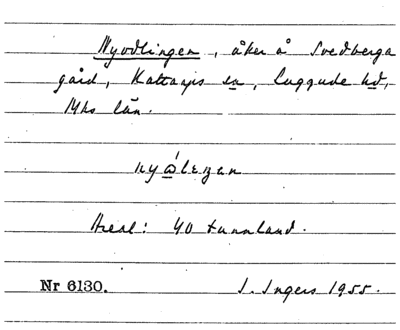 Nyodlingen, åker å Svedberga
gård, Kattarps sn, Luggude hd,
Mhs län.
Areal: 40 tunnland.
Nr 6130. I. Ingers 1955.